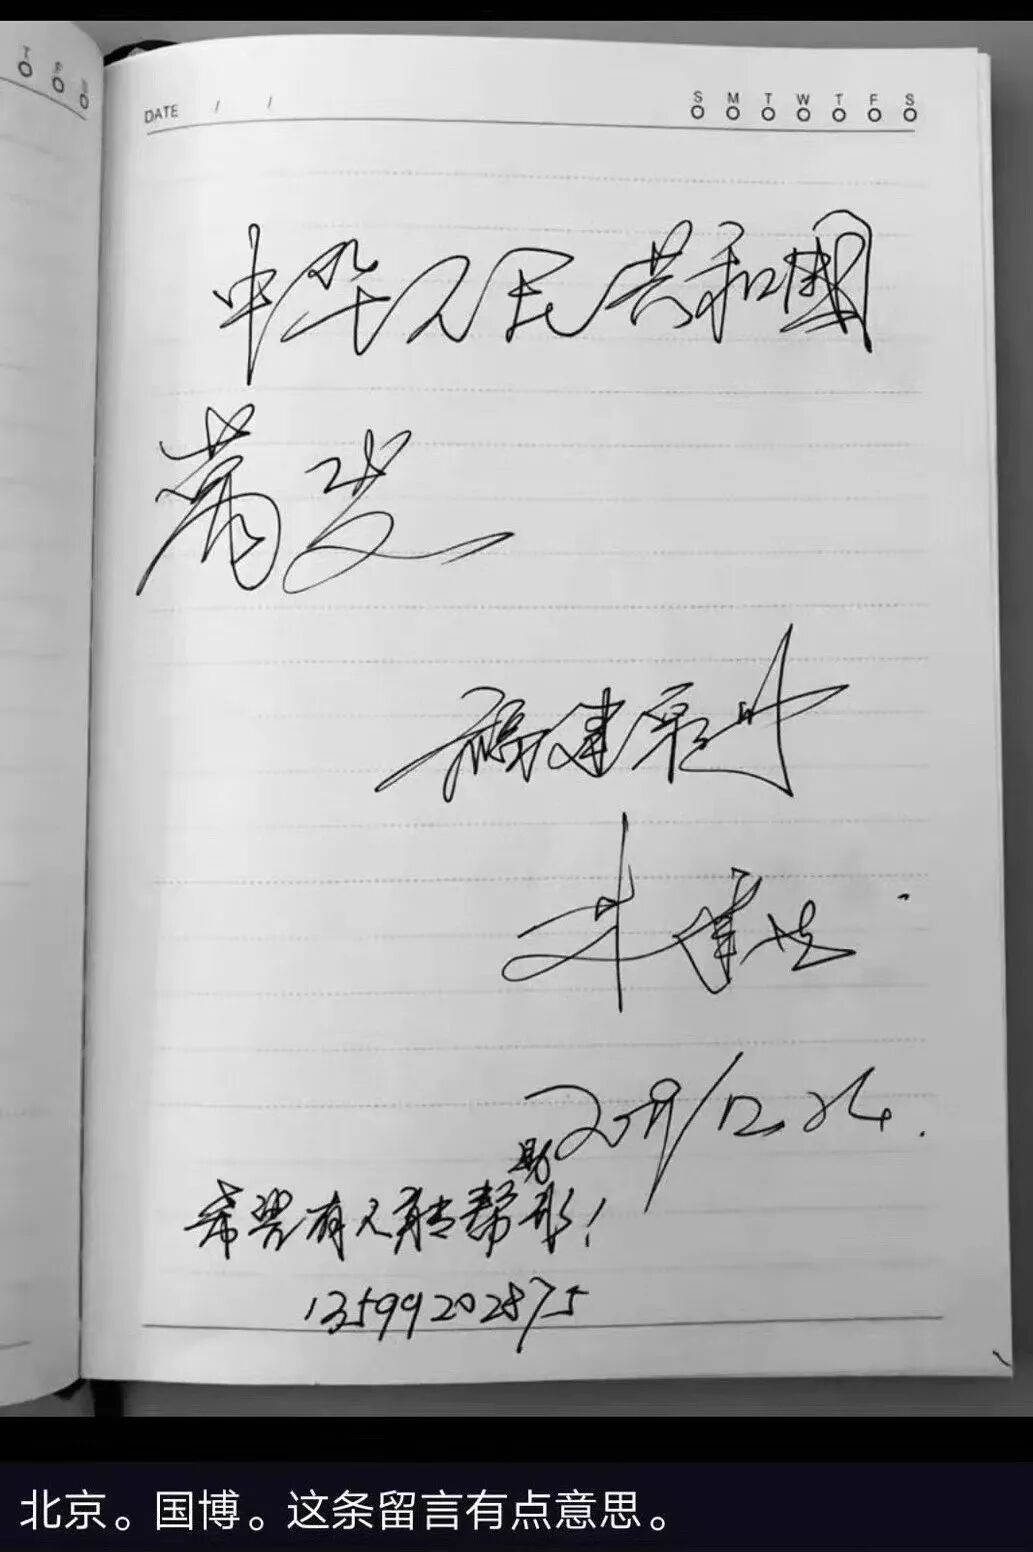 T F S
DATE / / S M T W T F S
中华人民共和國
萬岁
福建泉州
朱建
2019/12.
希望有人能帮助!
13599202875
北京。国博。这条留言有点意思。